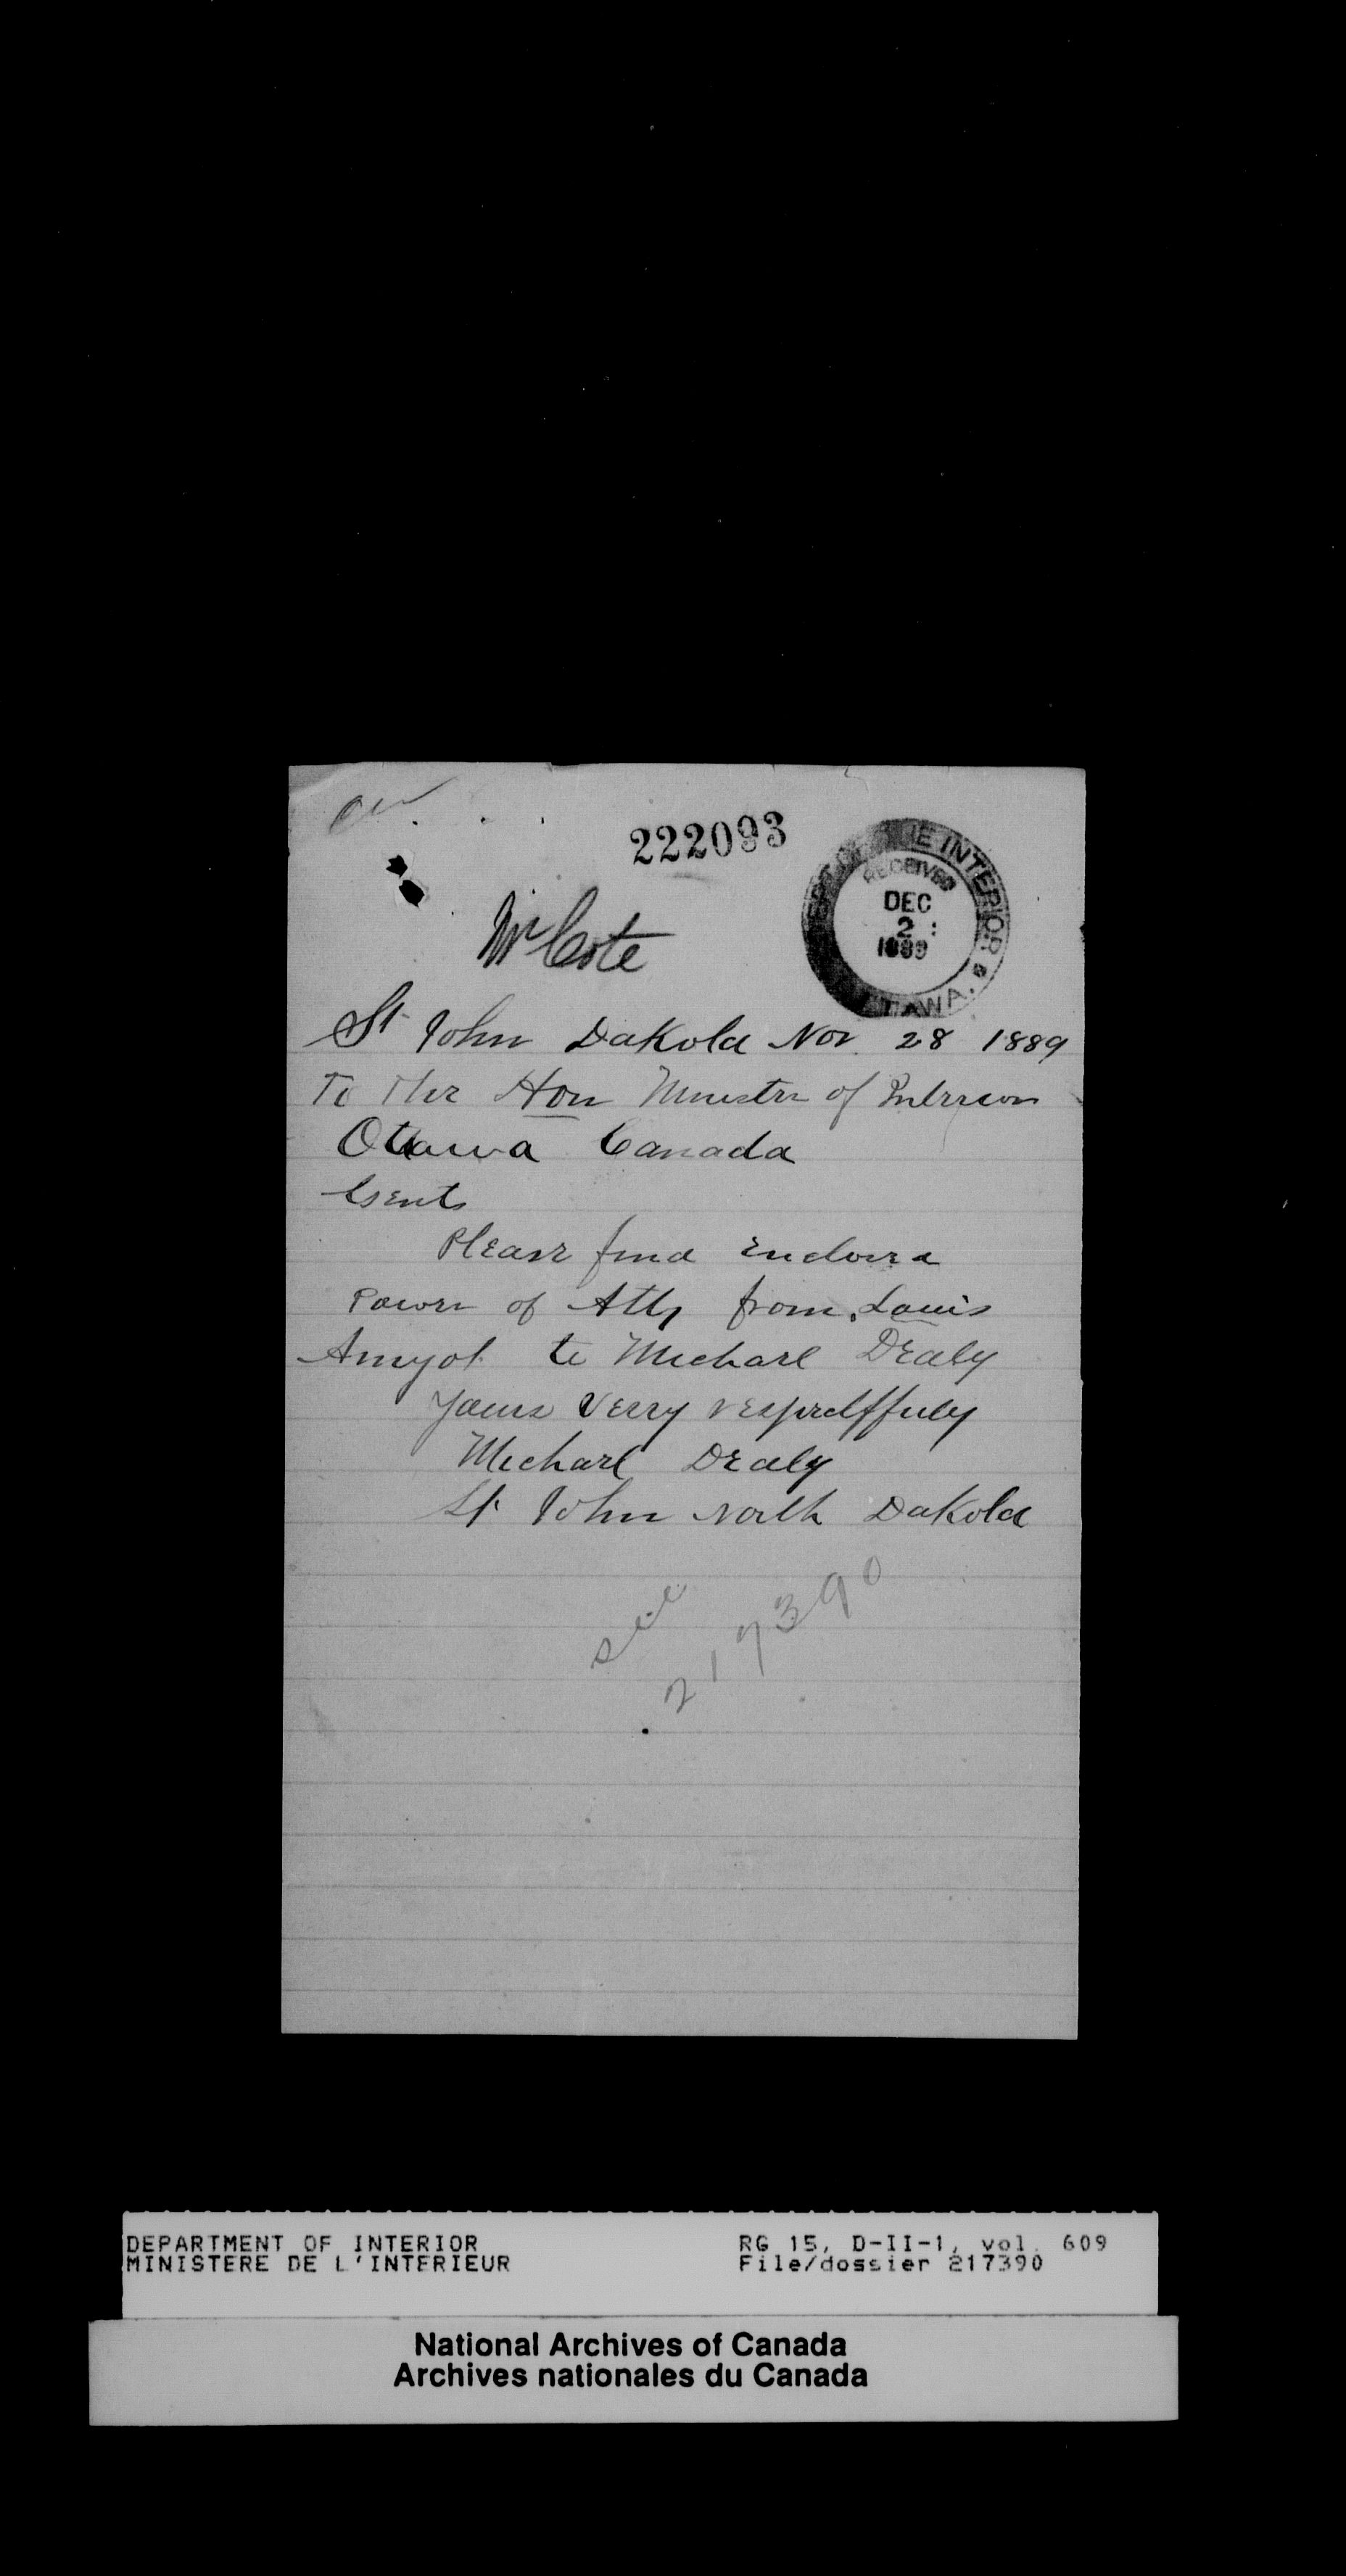 222093
INTERIOR
RECEIVED
DEC
2
1889
Mr Cote
St John Dakota Nov. 28 1889
To The Hon Minister of Interior
Ottawa Canada
Gents
Please find Enclosed
Power of Atty from Louis
Amyot to Michael Dealy
Yours Verry respectffuly
Michael Dealy
St John North Dakota
see
217390
DEPARTMENT OF INTERIOR RG 15, D-II-1, vol. 609
MINISTERE DE L'INTERIEUR File/dossier 217390
National Archives of Canada
Archives nationales du Canada